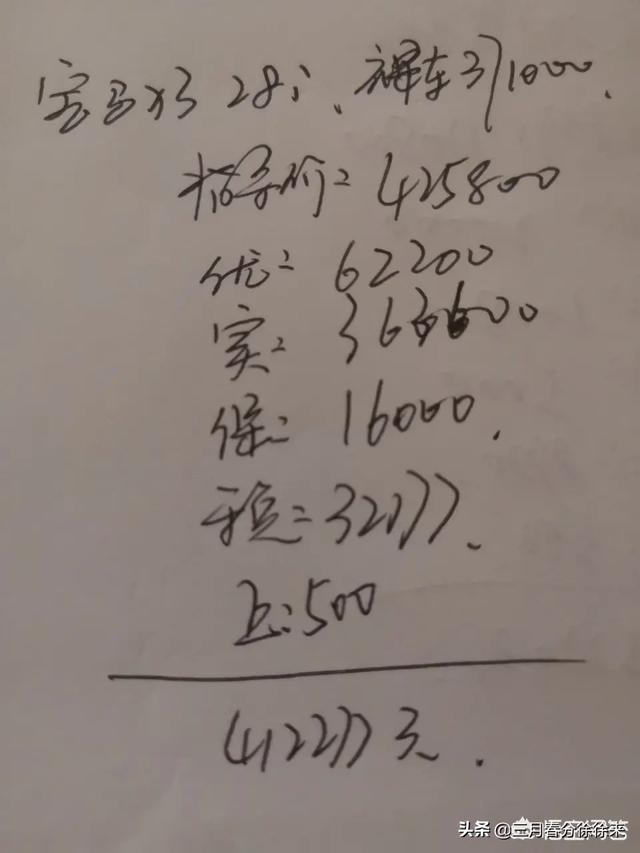 宝马X3 28i、裸车371000.
指导价=425800
优=62200
实=363600
保=16000.
税=32177.
上:500
412277元.
头条 @三月春分徐徐來